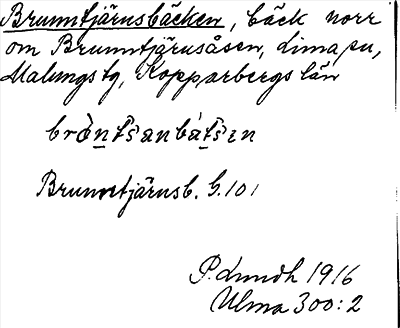 Brunntjärnsbäcken, bäck norr
om Brunntjärnsåsen, Lima sn,
Malungs tg, Kopparbergs län
Brunntjärnsb. G.101
P. Lundh 1916
Ulma 300:2